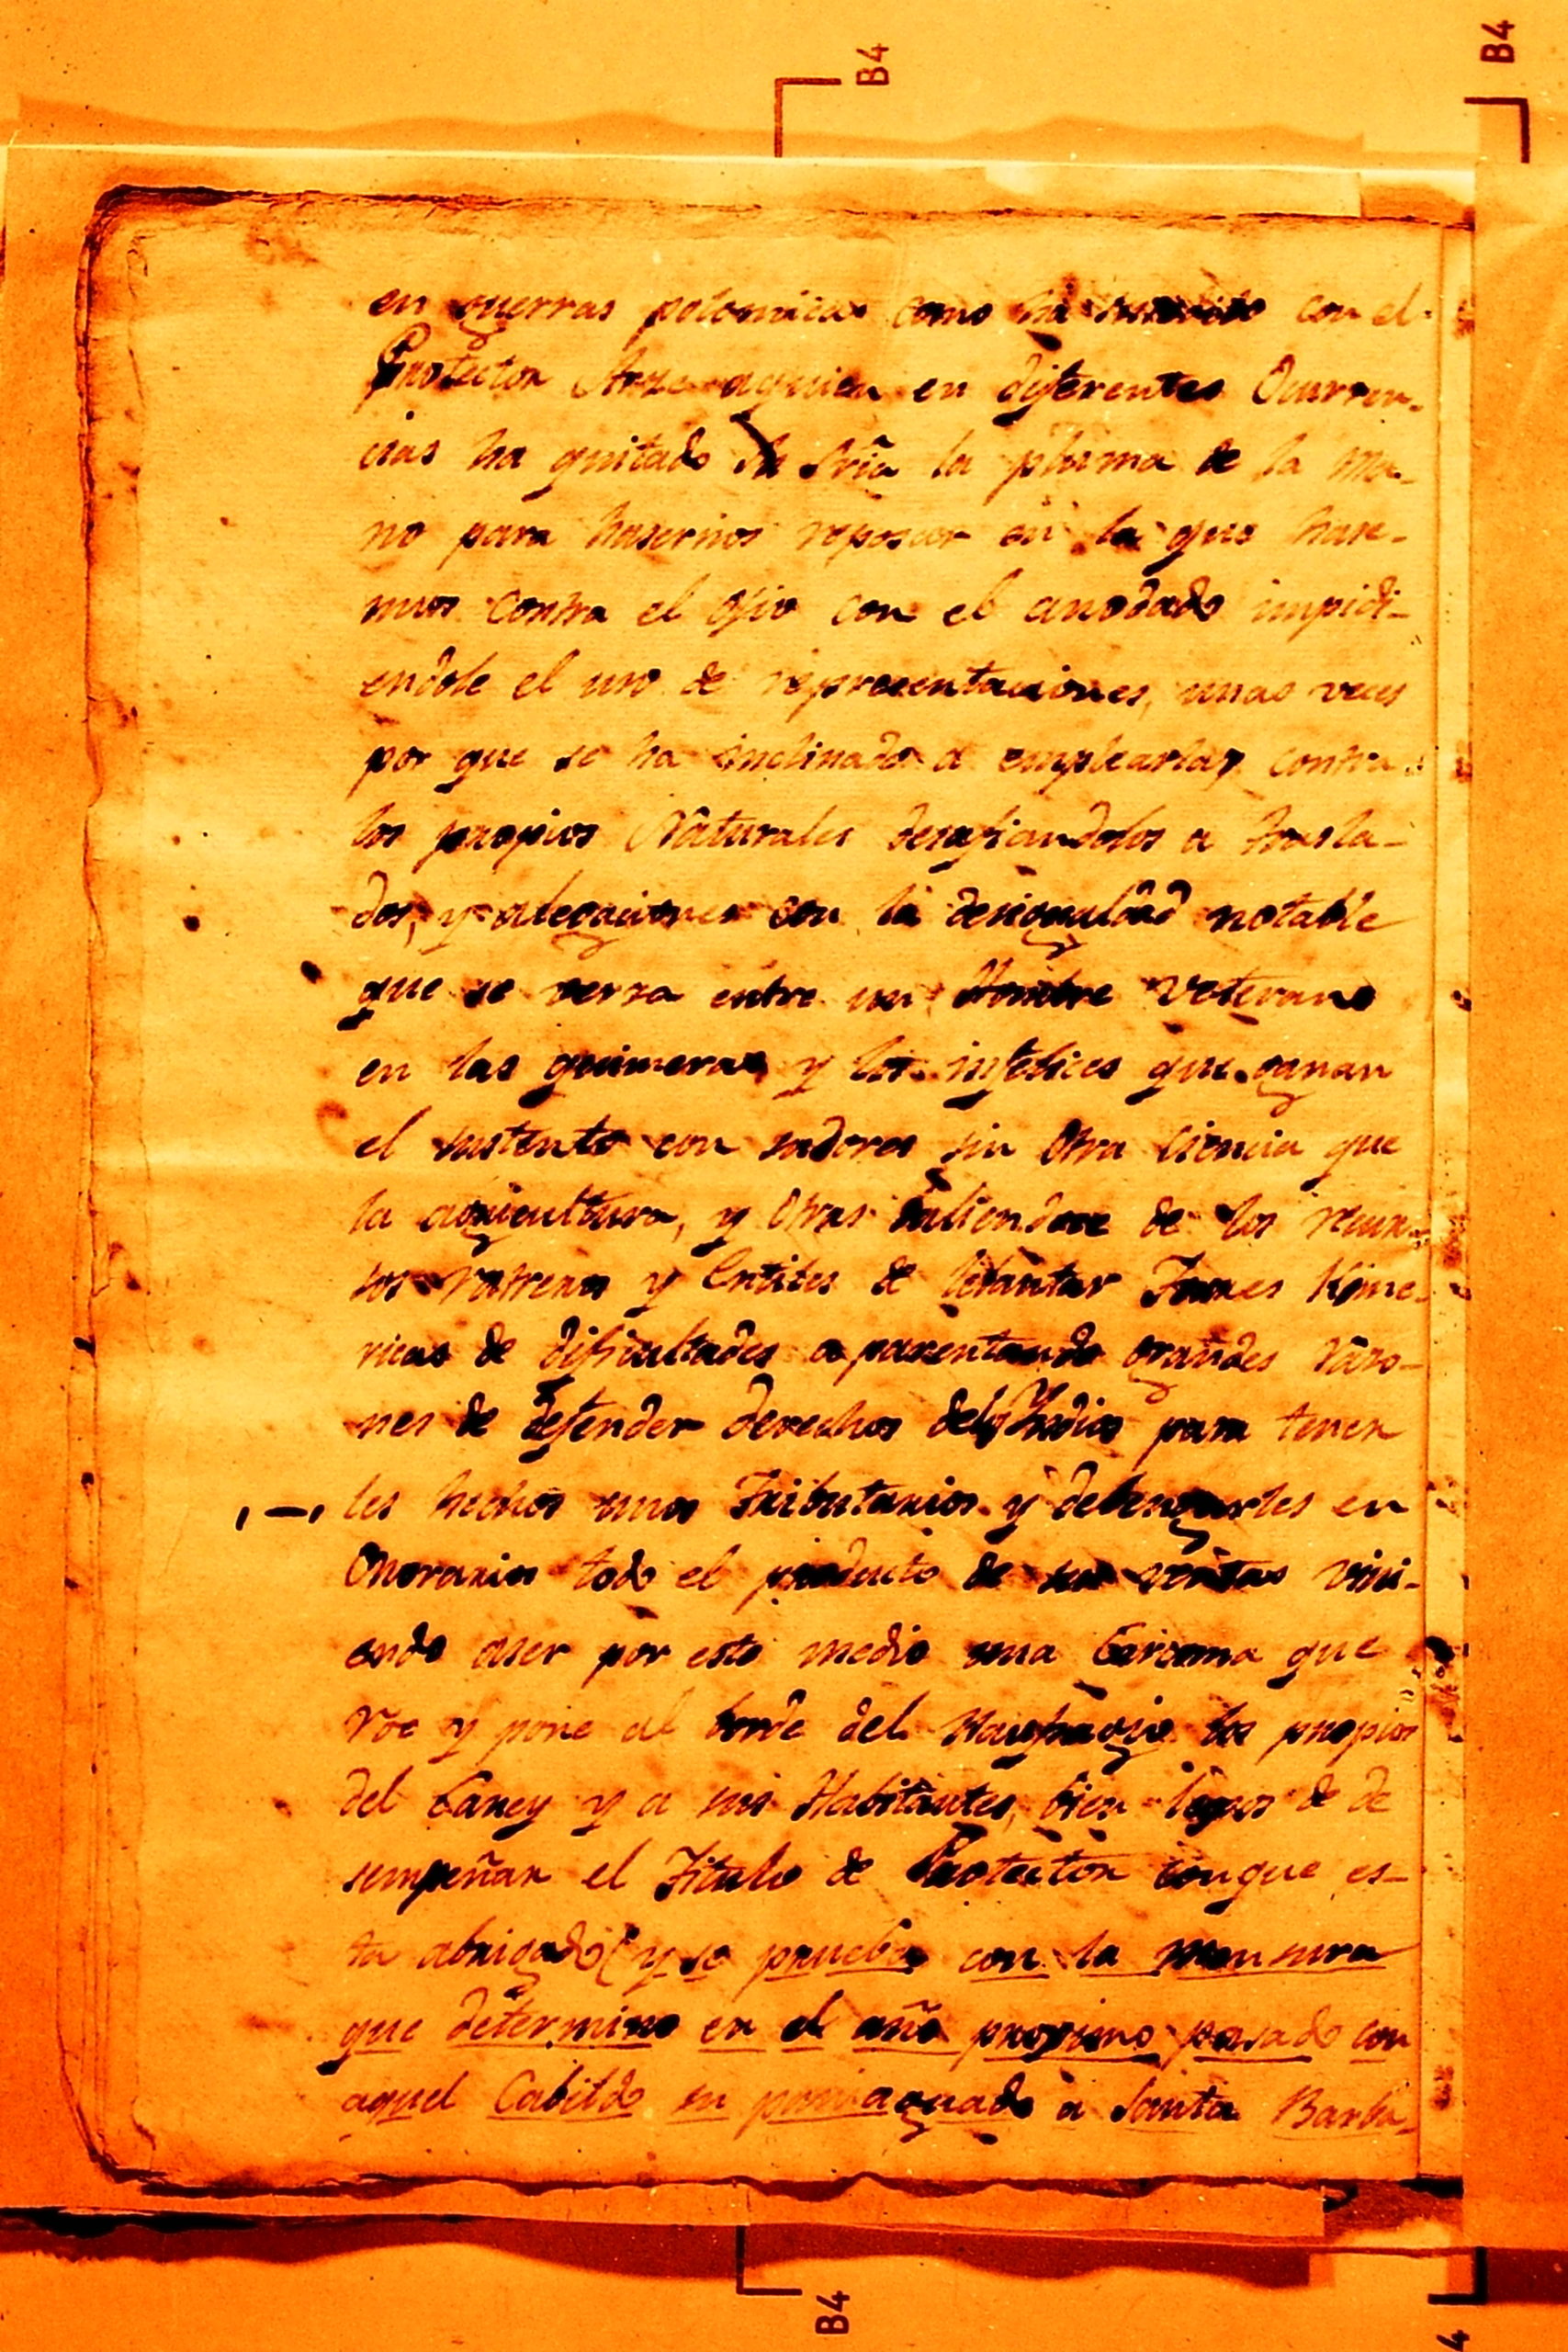 B4
B4
en guerras polemicas como ha sucedido con el
Protector Arze aquien en diferentes Ocurren-
cias ha quitado Sria la pluma de la ma-
no para hasernos reposar en la que hase-
mos contra el ofio con el anodado impidi-
endole el uso de representaciones, unas veces
por que se ha inclinado a emplearlas contra
los propios Naturales desafiandolos a trasla-
dos, y alegaciones con la desigualdad notable
que se verra entre un Hombre Veterano
en las quimeras, y los infelices que ganan
el sustento con sudores sin otra Ciencia que
la agricultura, y otras valiendose de los recur-
sos rastreros y de lebantar Torres Kime-
ricas de dificultades aparentando grandes Raso-
nes de defender derechos delos Yndios para tener
les hechos unos Tributarios y debengarles en
Onorarios todo el producto de sus ventas vini-
endo aser por este medio una Carcoma que
roe y pone al borde del Naufragio los propios
del Caney y a sus Habitantes, bien lejos de de
sempeñar el Titulo de Protector conque es-
ta abrigado (y se prueba con la mensura
que determino en el año proximo pasado con
aquel Cabildo en a Santa Barba-
B4
4